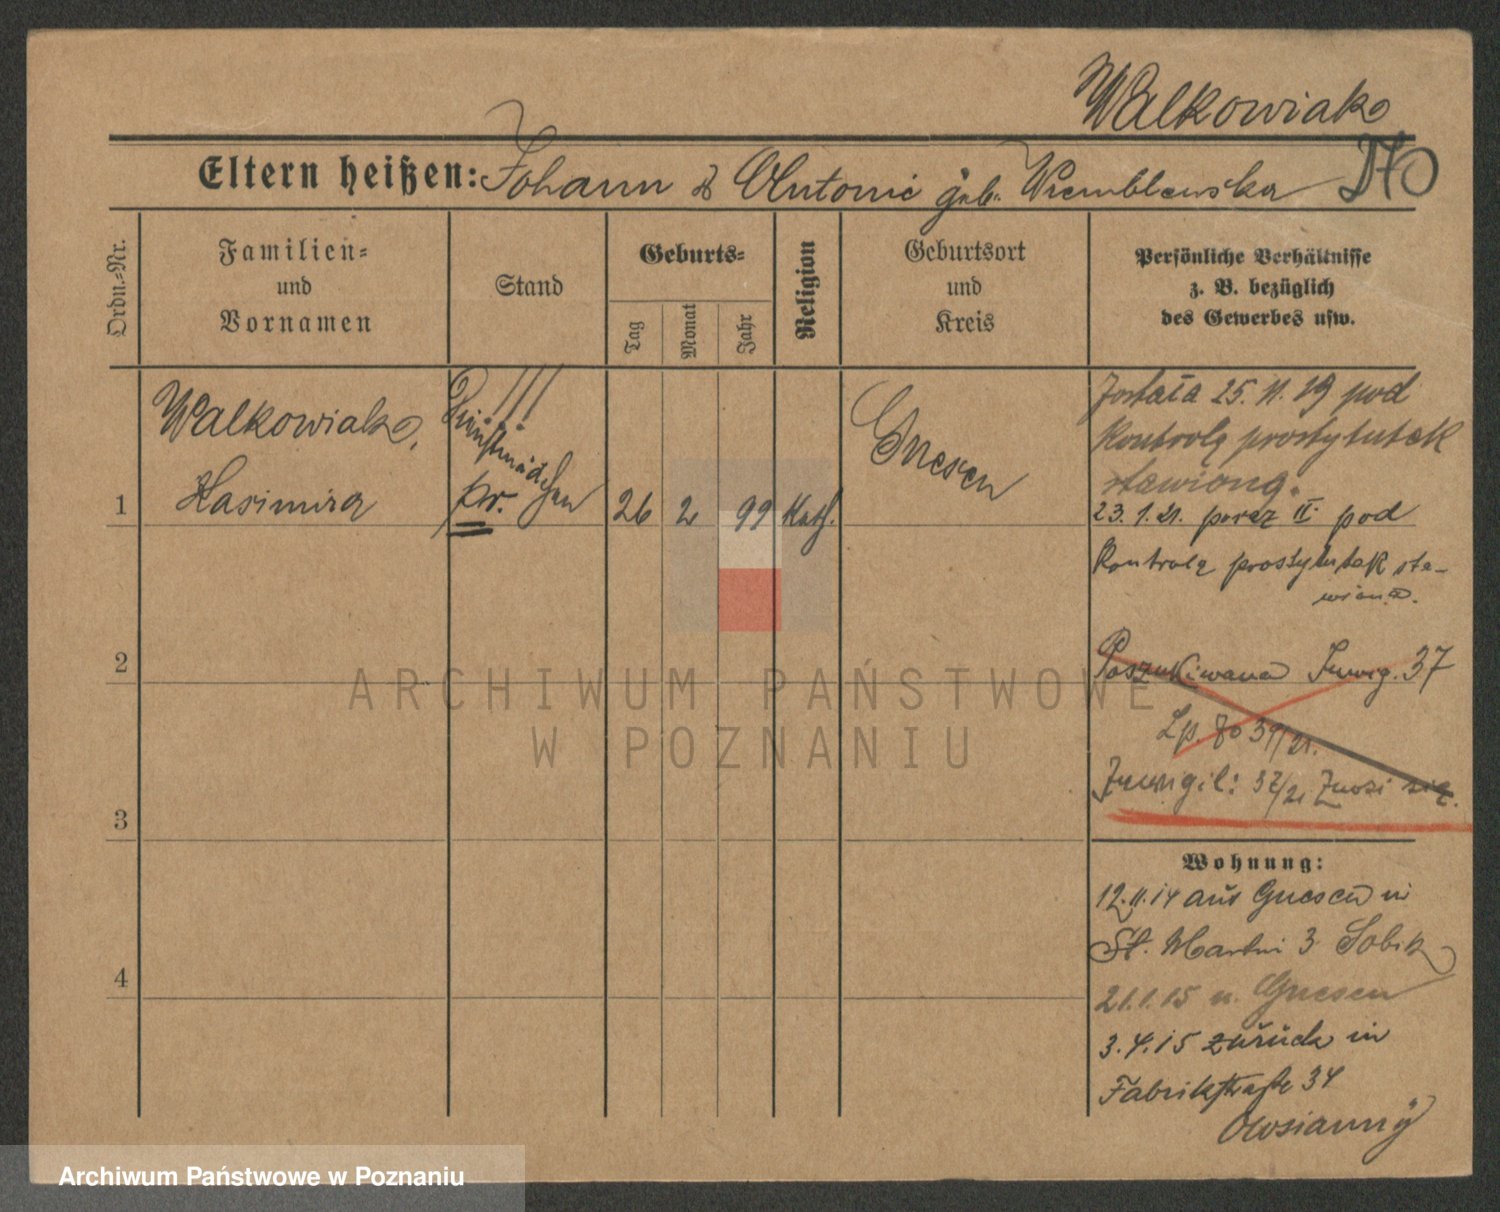 Walkowiak
Eltern heißen: Johann & Antonie geb. Wremblewska
Ordn.-Nr.
Familien-
und
Vornamen
Stand
Geburts-
Tag
Monat
Jahr
Religion
Geburtsort
und
Kreis
Persönliche Verhältnisse
z. B. bezüglich
des Gewerbes usw.
Walkowiak,
Kasimira
Dienstmädchen
pr.
!!!
1
26 2 99 Kath.
Gnesen
Została 25. 11. 19 pod
Kontrolą prostytutek
stawioną.
23. 1. 21. poraz II pod
Kontrolą prostytutek sta-
wioną.
2
Poszukiwana Inwig. 37
Lp. 39/21.
Inwigil: 37/21 Znosi się.
3
4
Wohnung:
12.11.14 aus Gnesen in
St. Martin 3 Sobik
21.1.15 n. Gnesen
3.4.15 zurück in
Fabrikstraße 34
Owsianny
ARCHIWUM PAŃSTWOWE
W POZNANIU
Archiwum Państwowe w Poznaniu